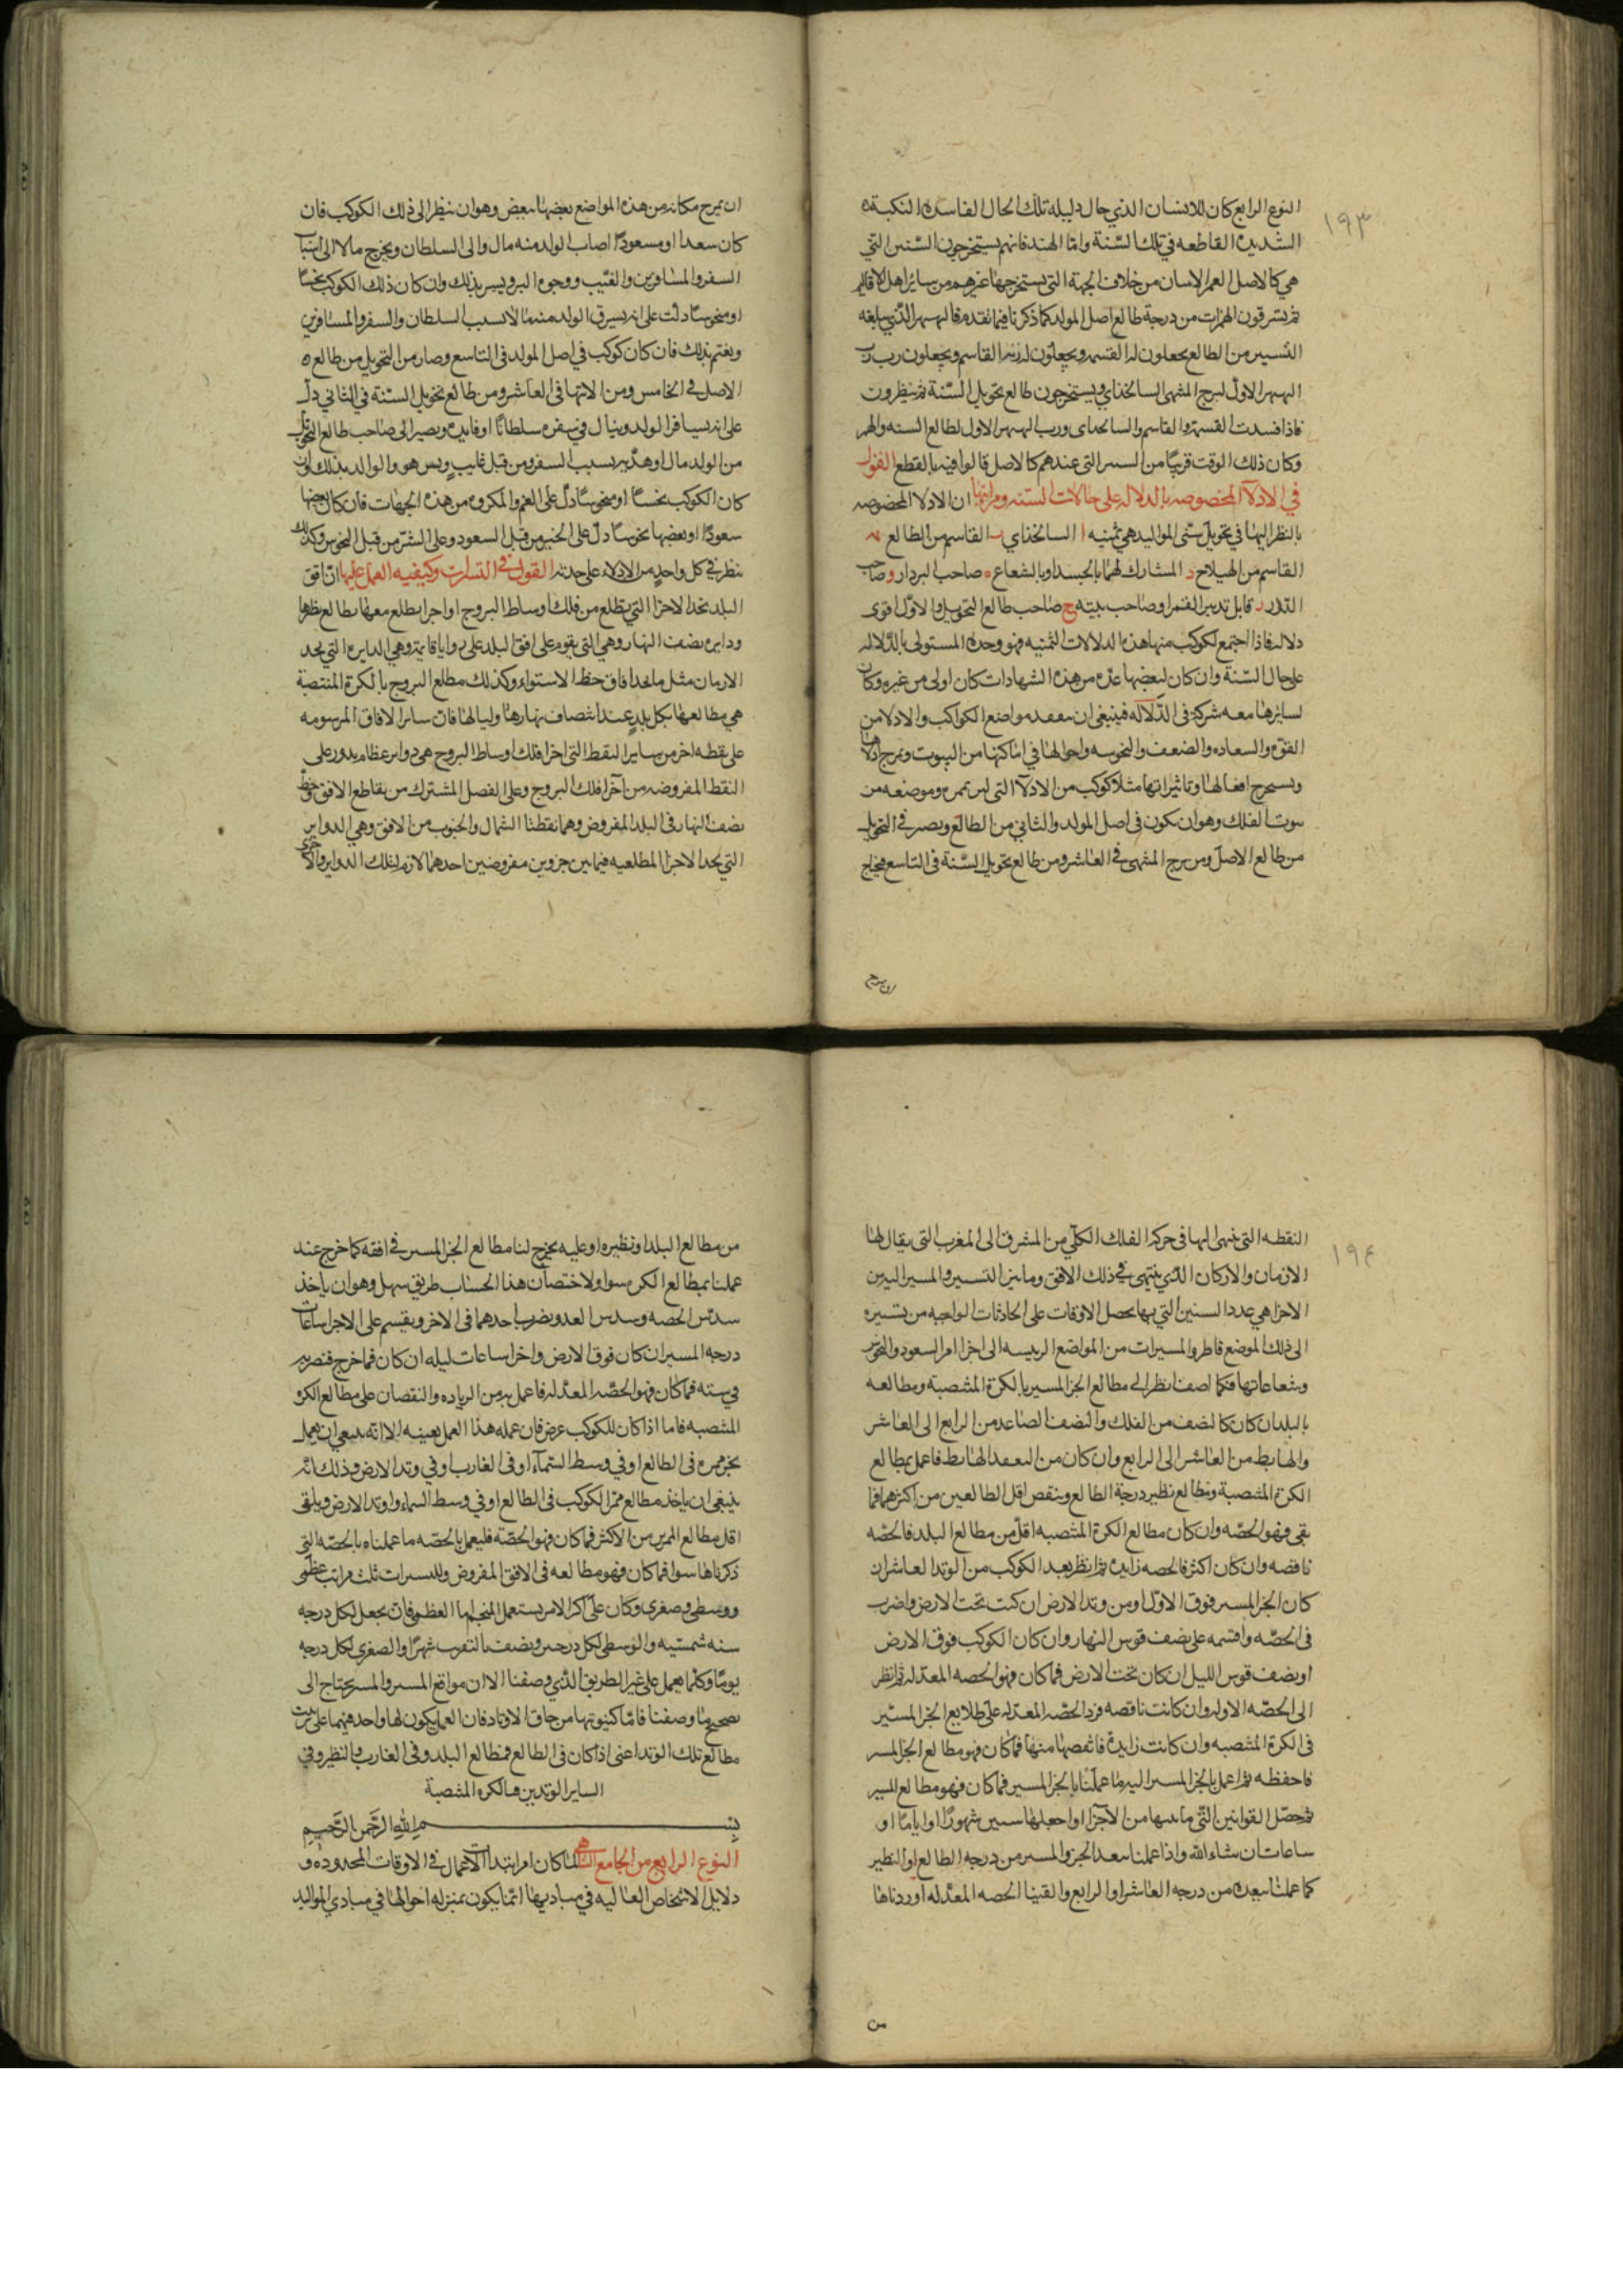 ١٩٣
النوع الرابع كان للانسان الذي حال دليله تلك الحال الفاسدة النكبة
الشديدة القاطعه في تلك السّنة وامّا الهند فانهم يستخرجون السّنين التي
هي كالاصل لعمر الانسان من خلاف الجهة التي يستخرجها غيرهم من سائر اهل الاقاليم
من درجة طالع اصل المولد كما ذكرنا فيما تقدم الذي يبلغه
التسيير من الطالع يجعلون له القسمه ويجعلون القاسم ويجعلون رب
الاول لبرج المنتهى السالخداي ويستخرجون طالع تحويل السّنة ثم ينظرون
فاذا فسدت القسمة والقاسم والسالحداى ورب الاول لطالع السنه والقمر
وكان ذلك الوقت قريبًا من السنين التي عندهم كالاصل قالوا فيه بالقطع القول
في الادلّا المخصوصه بالدلاله على حالات السّنه ومراتبها ان الادلا المخصوصه
بالنظر اليها في تحويل سنّي المواليد هي ثمنيه ا السالخذاي ب القاسم من الطالع ج
القاسم من الهيلاج د المشارك لهما بالجسد او بالشعاع ه صاحب البردار و صاحب
الدّور ز قابل تدبير القمر او صاحب بيته ح صاحب طالع التحويل والاوّل اقوى
دلاله فاذا اجتمع لكوكب منها هذه الدلالات الثمنيه فهو وحده المستولى بالدّلاله
على حال السّنة وان كان لبعضها عدّه من هذه الشهادات كان اولى من غيره وكان
لسائرها معه شركة في الدّلاله فينبغي ان يتفقد مواضع الكواكب والادلا من
القوّة والسعاده والضعف والنحوسه واحوالها في اماكنها من البيوت وتمزج ادلاها
ويستخرج افعالها وتاثيراتها مثلا كوكب من الادلّا وموضعه من
بيوت الفلك وهو ان يكون في اصل المولد والثاني من الطالع ويصير في التحويل
من طالع الاصل ومن برج المنتهى في العاشر ومن طالع تحويل السّنة في التاسع فيحتاج
ان يمزج مكانه من هذه المواضع بعضها ببعض وهو ان ينظر الى ذلك الكوكب فان
كان سعدا او مسعودًا اصاب الولد منه مال والى السلطان ويخرج مالا الى اسباب
السفر والمسافرين والغيّب ووجوه البر ويسر بذلك وان كان ذلك الكوكب نحسًا
او منحوسًا دلّت على انه يسرق الولد بسبب السلطان والسفر والمسافرين
ويغتم بذلك فان كان كوكب في اصل المولد في التاسع وصار من التحويل من طالع
الاصل في الخامس ومن الانتها في العاشر ومن طالع تحويل السّنة في الثاني دلّ
على انه يسافر الولد وينال في سفره سلطانًا او فايدة ويصير الى صاحب طالع التحويل
من الولد مال او هديّه بسبب السفر ومن قبل غايبٍ ويسر هو والوالد بذلك وان
كان الكوكب نحسًا او منحوسًا دلّ على الغم والمكروه من هذه الجهات فان كان بعضها
سعودًا او بعضها نحوسًا دلّ على الخير من قبل السعود وعلى الشرّ من قبل النحوس وكذلك
ينظر في كل واحدٍ من الادلّه على حدته القول في التسيرات وكيفيه العمل عليها ان افق
البلد يحد الاجزا التي تطلع من فلك اوساط البروج او اجزا يطلع معها بطالع نظيرها
ودايرة نصف النهار وهي التي يقوم على افق البلد على زوايا قايمة وهي الدايرة التي يحد
الازمان مثل ما يحد افاق خط الاستواء وكذلك مطالع البروج بالكرة المنتصبة
هي مطالعها بكل بلدٍ عند انتصاف نهارها ولياليها فان ساير الافاق المرسومه
على نقطه اخر من ساير النقط التي اجزا فلك اوساط البروج هي دواير عظام يدور على
النقط المفروضه من اجزا فلك البروج وعلى الفصل المشترك من تقاطع الافق وخط
نصف النهار في البلد المفروض وهما نقطتا الشمال والجنوب من الافق وهي الدواير
التي يحد الاجزا المطلعيه فيما بين جزوين مفروضين احدهما لازم لتلك الدواير والاخرى
١٩٤
النقطه التي ينتهى اليها في حركة الفلك الكلّي من المشرق الى المغرب التي يقال لها
الازمان والاركان الذي ينتهى في ذلك الافق وما بين التسيير والمسير اليه من
الاجزا هي عدد السنين التي بها يحصل الاوقات على الحادثات الواجبه من تسييره
الى ذلك الموضع المسيرات من المواضع الرييسه الى اجزا السعود والنحوس
وشعاعاتها فكما اصفنا ينظر الى مطالع الجز المسير بالكرة المنتصبة ومطالعه
بالبلد ان كان النصف من الفلك والنصف الصاعد من الرابع الى العاشر
والهابط من العاشر الى الرابع وان كان من النصف الهابط فاعمل بمطالع
الكرة المنتصبة ومطالع نظير درجة الطالع وينقص اقل الطالعين من اكثرهما فما
بقى فهو الحصّه وان كان مطالع الكرة المنتصبه اقلّ من مطالع البلد فالحصّه
ناقصه وان كان اكثر فالحصه زايدة ثم انظر بعد الكوكب من الوتد العاشر ان
كان الجز المسير فوق الاوّل ومن وتد الارض ان كنت تحت الارض واضرب
في الحصّه واقسمه على نصف قوس النهار وان كان الكوكب فوق الارض
او نصف قوس الليل ان كان تحت الارض فما كان فهو الحصه المعدّله ثم انظر
الى الحصّه الاوله وان كانت ناقصه فزد الحصّه المعدّله على طلايع الجز المسيّر
في الكرة المنتصبه وان كانت زايدة فانقصها منها فما كان فهو مطالع الجز المسير
فاحفظه ثم اعمل بالجز المسير اليه ما عملنا بالجز المسير فما كان فهو مطالع المسير
ثم حصّل القوانين التي ما بينها من الاجزا واجعلها سنين شهورًا او ايامًا او
ساعات ان شاء الله واذا عملنا ببعد الجز والمسير من درجه الطالع او النظير
كما عملنا ببعده من درجه العاشر او الرابع والقينا الحصه المعدّله او زدناها
من
من مطالع البلد او نظيره او عليه يخرج لنا مطالع الجز المسير في افقه كما خرج عند
عملنا بمطالع الكره سوا ولاختصار هذا الحساب طريق سهل وهو ان ياخذ
سدس الحصه وسدس البعد ويضرب احدهما في الاخر ويقسم على الاجزا ساعات
درجه المسير ان كان فوق الارض واجزا ساعات ليله ان كان فما خرج فنصربه
في سته فما كان فهو الحصّه المعدّله فاعمل به من الزياده والنقصان على مطالع الكره
المنتصبه فاما اذا كان للكوكب عرض فان عمله هذا العمل بعينه الا انّه ينبغي ان يعمل
بجز ممره في الطالع او في وسط السّمآء او في الغارب او في وتد الارض وذلك انه
ينبغي ان ياخذ مطالع ممّر الكوكب في الطالع او في وسط السماء او وتد الارض ويلقى
اقل مطالع الممرين من الاكثر فما كان فهو الحصّة فليعمل بالحصّه ما عملناه بالحصّه التي
ذكرناها سوا فما كان فهو مطالعه في الافق المفروض وللتسيرات ثلث مراتب عظمى
ووسطى وصغرى وكان على اكثر الامر يستعمل المنجّم اما العظمى فان يجعل لكل درجه
سنه شمسيه والوسطى لكل درجتين ونصف بالتقريب شهرًا والصغرى لكل درجه
يومًا وكلما يعمل على غير الطريق الذي وصفنا الا ان مواقع المسير والمسير يحتاج الى
تصحيح ما وصفنا فامّا كينونتها من حاق الاوتاد فان العمل يكون لها واحد منهما على ترتيب
مطالع تلك الوتد اعنى اذا كان في الطالع فمطالع البلد وفي الغارب والنظير وفي
الساير الوتدين فبالكره المنتصبة
بسم الله الرّحمن الرّحيم
النوع الرابع من الجامع الشاهي لما كان امر ابتداآت الاعمال في الاوقات المحدوده و
دلايل الاشخاص العاليه في مباديها انّما يكون بمنزله احوالها في مبادي المواليد